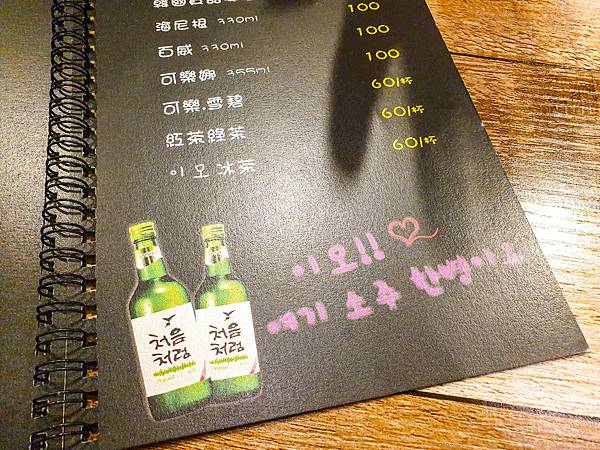 100
海尼根 330ml 100
百威 330ml 100
可樂娜 355ml 100
可樂.雪碧 60/杯
紅茶綠茶 60/杯
이모冰茶 60/杯
이모!!
여기 소주 한병이요
처음
처럼
처음
처럼